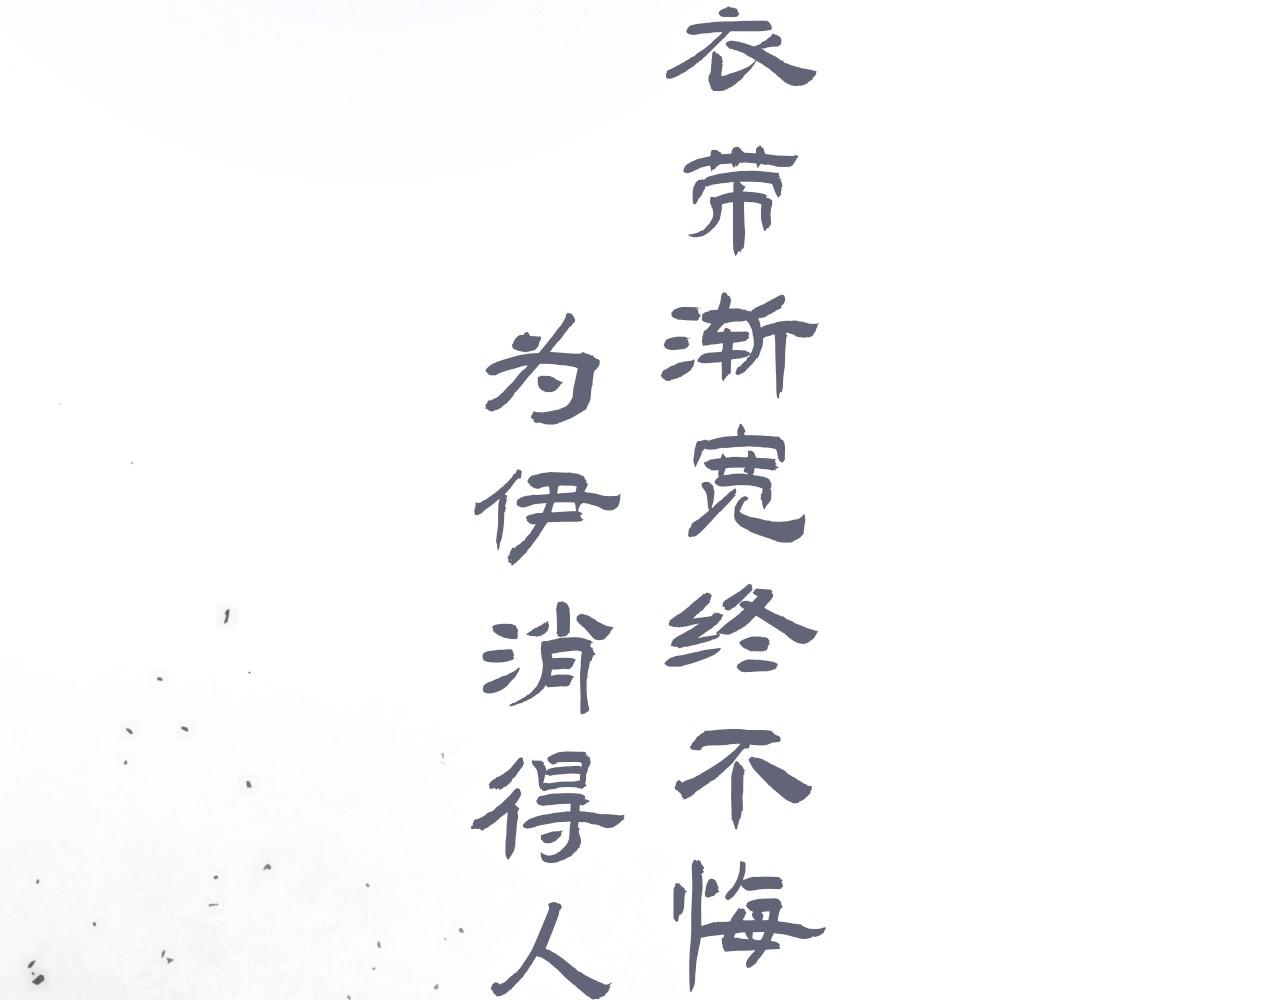 衣带渐宽终不悔
为伊消得人